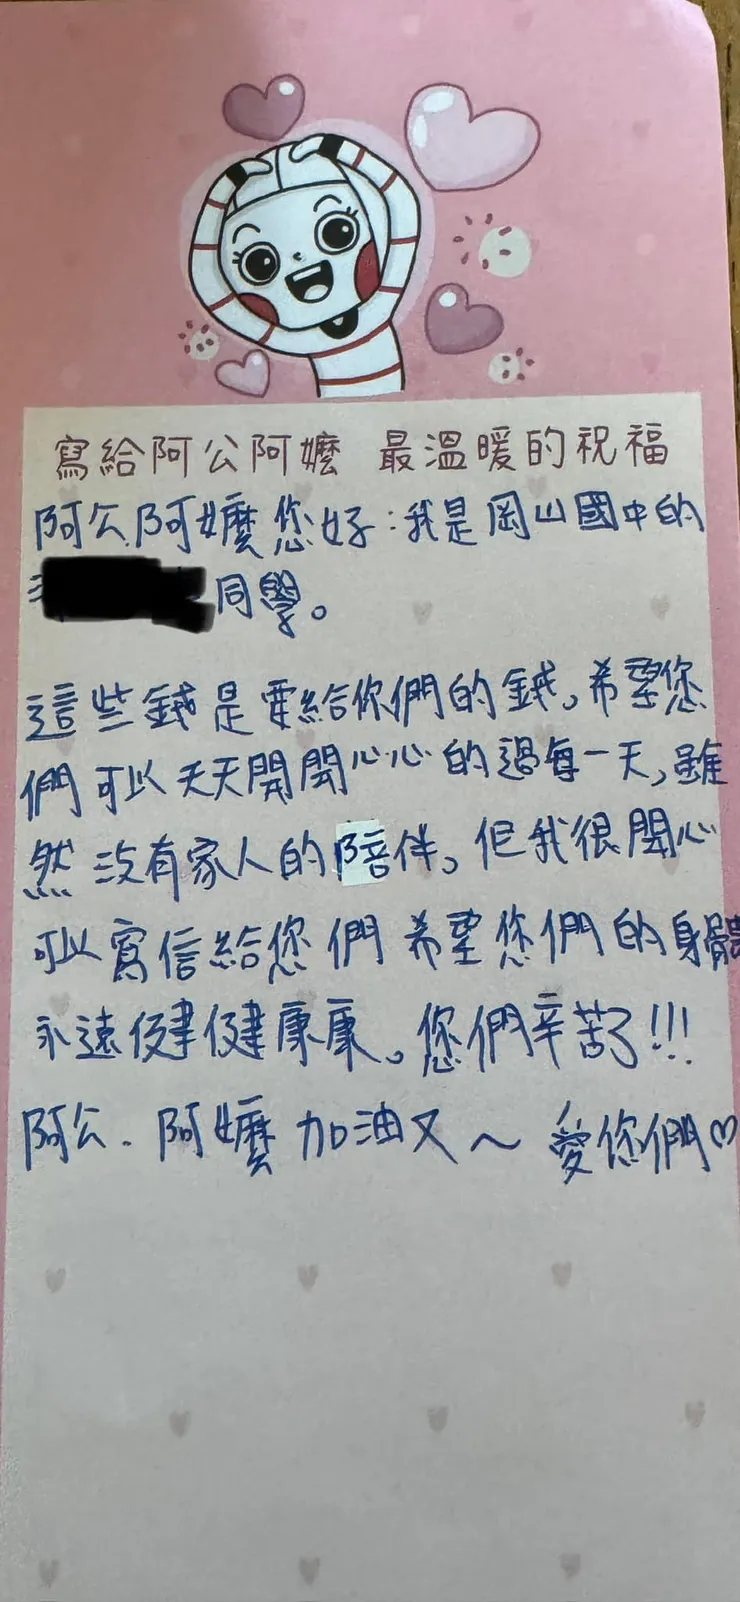 寫給阿公阿嬤 最溫暖的祝福
阿公阿嬤您好:我是岡山國中的
同學。
這些錢是要給你們的錢。希望您
們可以天天開開心心的過每一天,雖
然沒有家人的陪伴。但我很開心
可以寫信給您們 希望您們的身體
永遠健健康康。您們辛苦了!!!
阿公、阿嬤加油又~愛您們♡